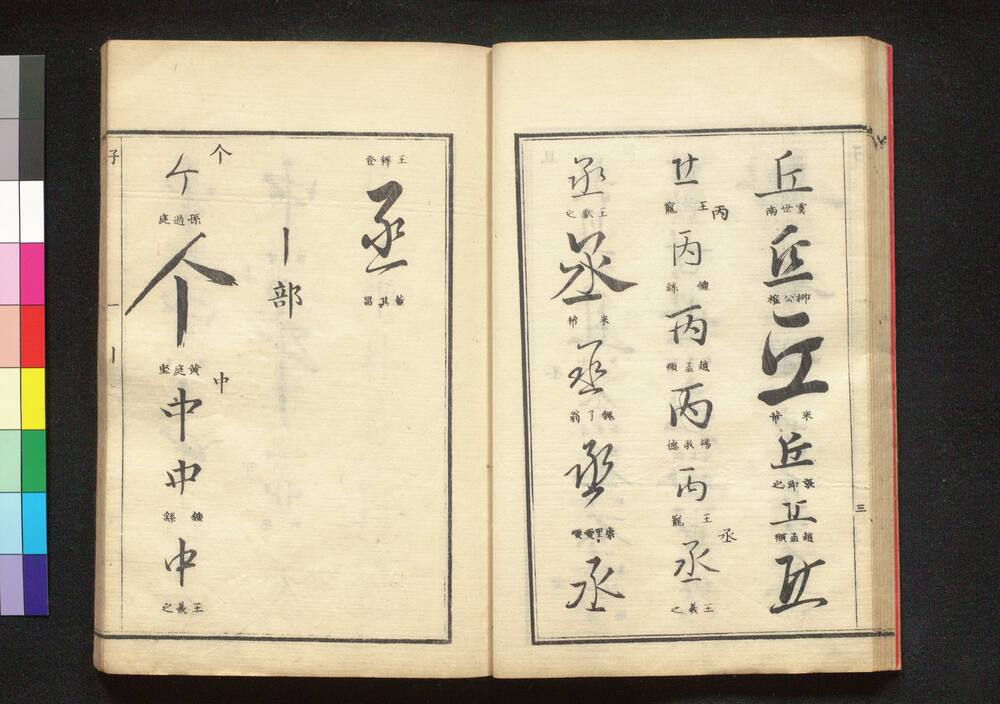 丘
虞世南
丘
柳公權
丘
米芾
丘
張即之
丘
趙孟頫
丘
三
丘
王寵
丙
丙
鍾繇
丙
趙孟頫
丙
楊敬德
丙
王寵
丞
丞
王羲之
丞
王獻之
丞
米芾
丞
魏了翁
丞
康里巎巎
丞
王穉登
丞
董其昌
丨部
个
个
孫過庭
个
黃庭堅
中
中
中
鍾繇
中
王羲之
子
一
丨